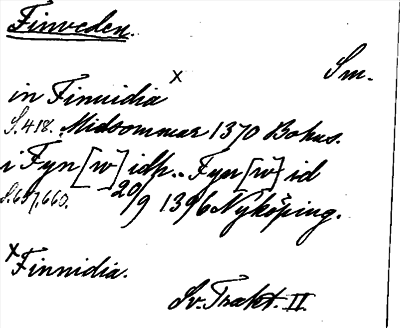 Finveden.
Sm.
in Finuidia x
S. 418. Midsommar 1370 Bohus.
i Fyn [w] idh. - Fyn [w] id
S. 657, 660. 20/9 1396 Nyköping.
x Finnidia.
Sv. Trakt. II.